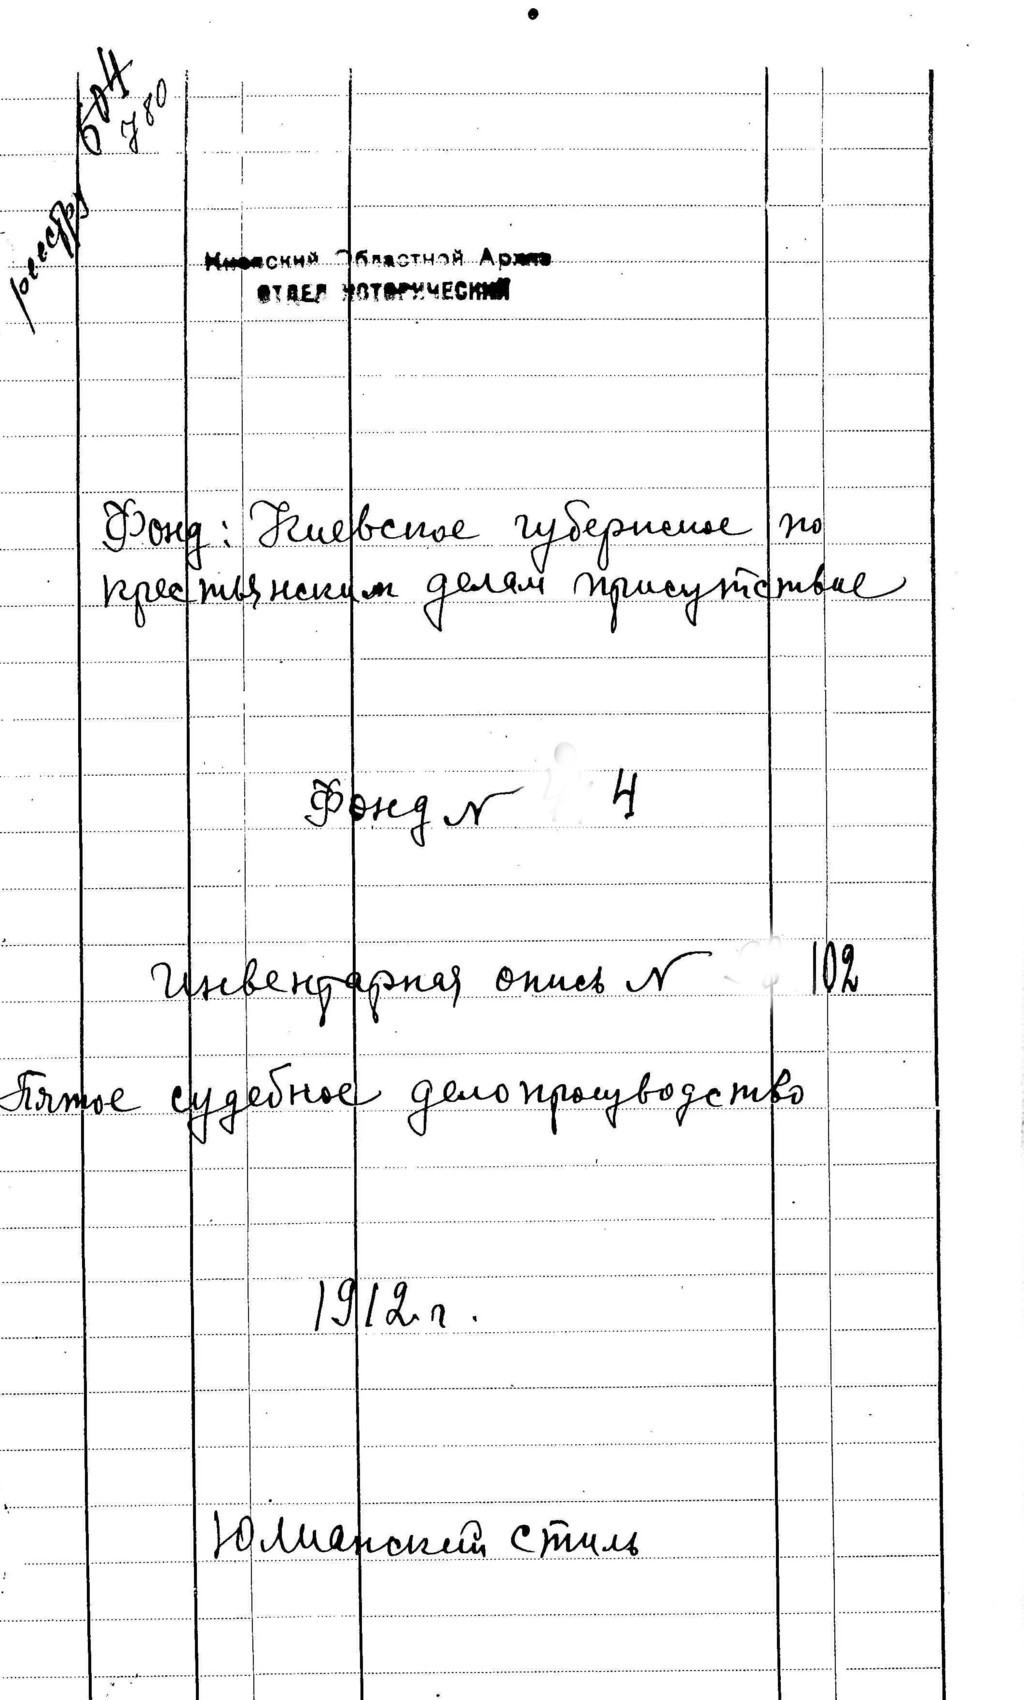 реестр
780
Киевский Областной Архив
ОТДЕЛ ИСТОРИЧЕСКИЙ
Фонд: Киевское губернское по
крестьянским делам присутствие
Фонд N 4
Инвентарная опись N 102
Пятое судебное делопроизводство
1912 г.
Юлианский стиль